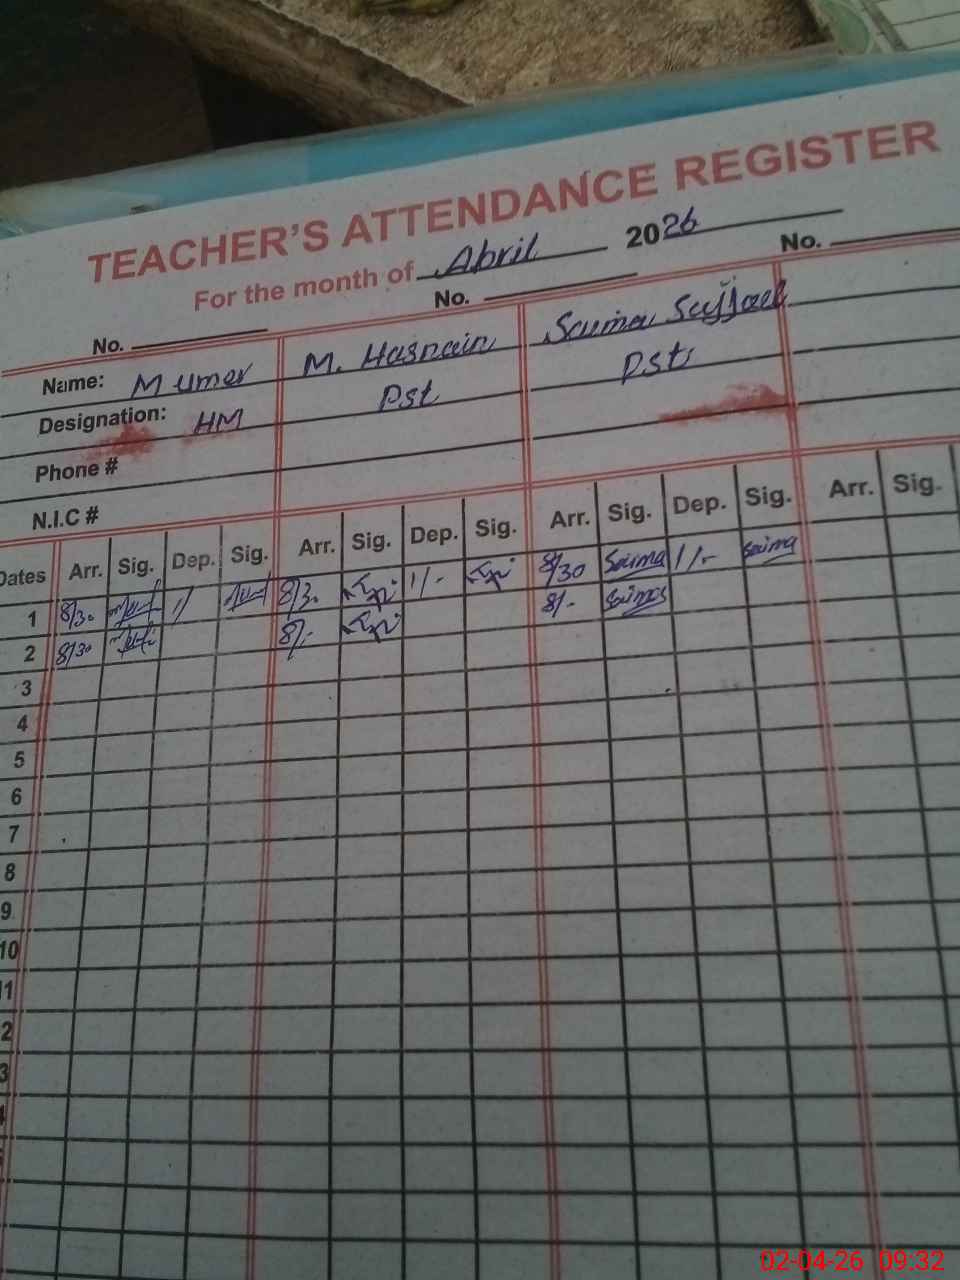 TEACHER'S ATTENDANCE REGISTER
For the month of Abril 2026
No. No. No.
Name: M umer M. Hasnain Saima Sajjad
Designation: HM Pst Pst
Phone #
N.I.C #
Dates Arr. Sig. Dep. Sig. Arr. Sig. Dep. Sig. Arr. Sig. Dep. Sig. Arr. Sig.
1 8/30 1/ 8/30 1/- 8/30 Saima 1/- Saima
2 8/30 8/- 8/- Saima
3
4
5
6
7
8
9
10
11
2
3
02-04-26 09:32